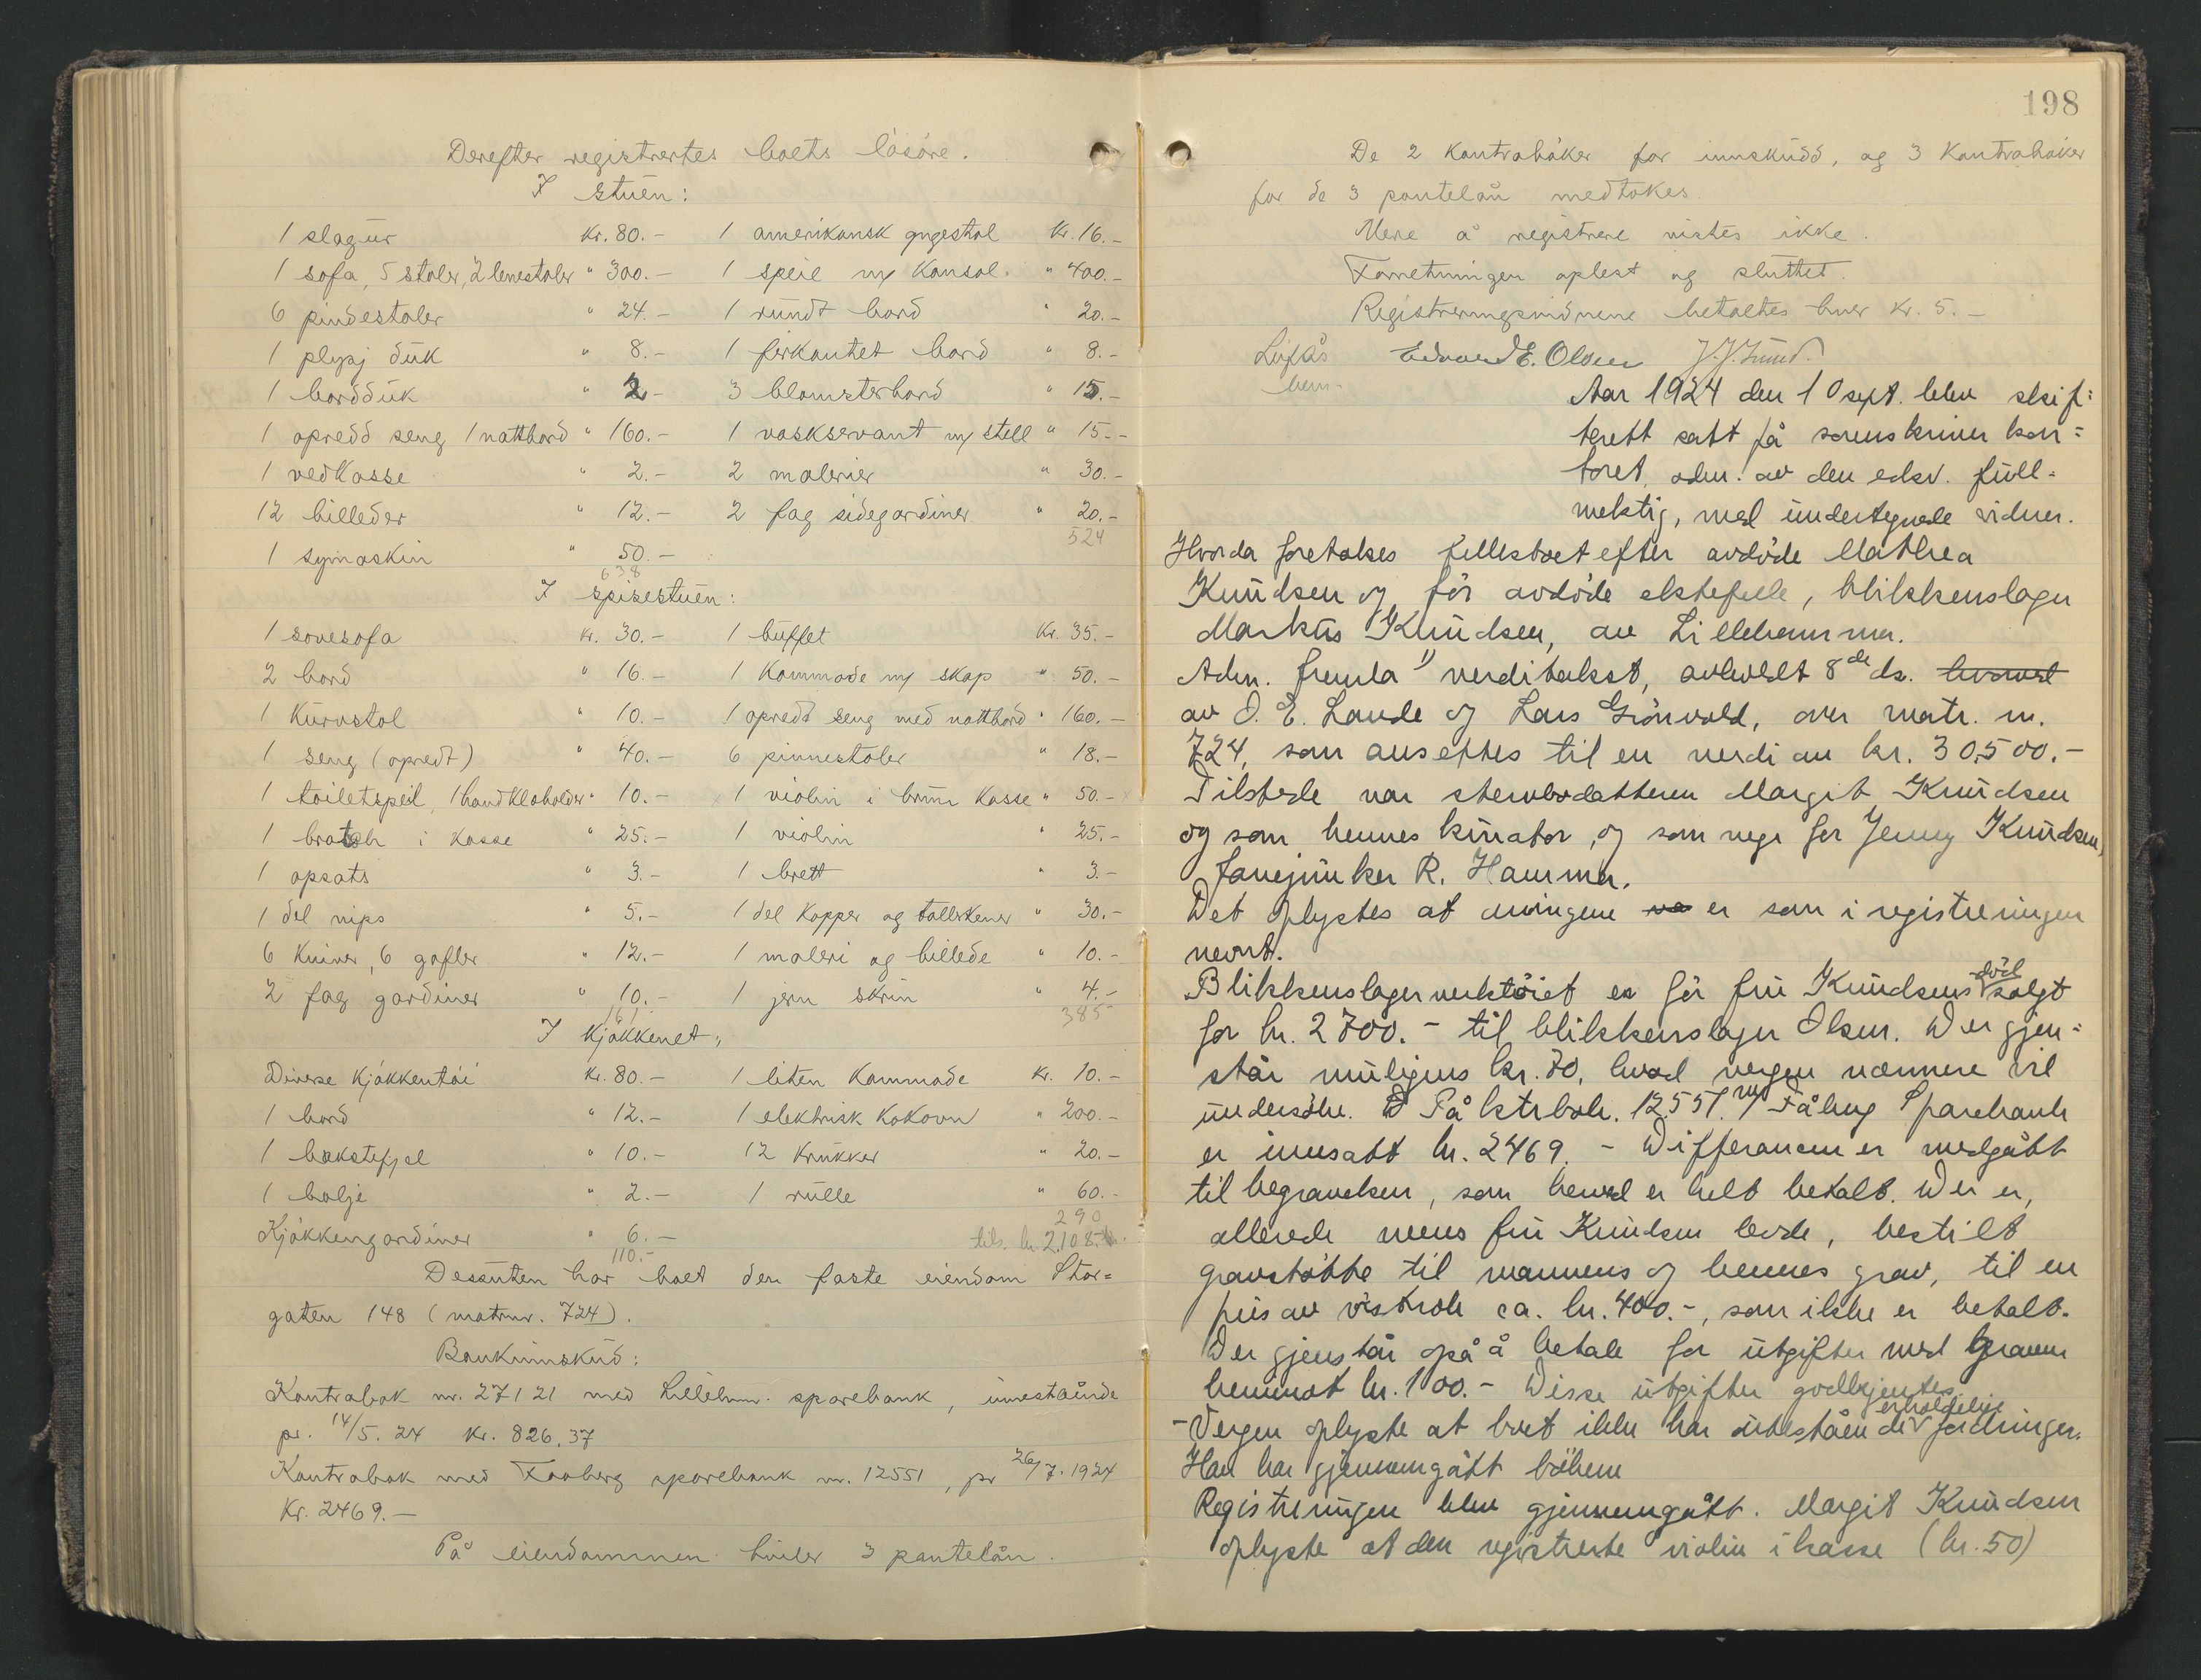 Derefter registrertes boets løsøre.
I stuen:
1 slagur kr. 80.- 1 amerikansk gyngestol kr. 16.-
1 sofa, 5 stoler, 2 lenestoler " 300.- 1 speil m/ konsol. " 400.-
6 pindestoler " 24.- 1 rundt bord " 20.-
1 plysj duk " 8.- 1 firkantet bord " 8.-
1 bordduk " 2- 3 blomsterbord " 15.-
1 opredd seng 1 nattbord " 160.- 1 vaskservant m/ stell " 15.-
1 vedkasse " 2.- 2 malerier " 30.-
12 billeder " 12.- 2 fag sidegardiner " 20.-
524
1 symaskin " 50.-
638
I spisestuen:
1 sovesofa kr. 30.- 1 buffet kr. 35.-
2 bord " 16.- 1 kommode m/ skap " 50.-
1 kurvstol " 10.- 1 opredt seng med nattbord " 160.-
1 seng (opredt) " 40.- 6 pinnestoler " 18.-
1 toiletspeil, 1 handkleholder " 10.- 1 violin i brun kasse " 50.-
1 bratsch i kasse " 25.- 1 violin " 25.-
1 opsats " 3.- 1 brett " 3.-
1 del nips " 5.- 1 del kopper og tallerkener " 30.-
6 kniver, 6 gafler " 12.- 1 maleri og billede " 10.-
2 fag gardiner " 10.- 1 jern skrin " 4.-
161 385
I kjøkkenet:
Diverse kjøkkentøi kr. 80.- 1 liten kommode kr. 10.-
1 bord " 12.- 1 elektrisk kokovn " 200.-
1 bakstefjel " 10.- 12 krukker " 20.-
1 balje " 2.- 1 rulle " 60.-
290
Kjøkkengardiner " 6.- tils. kr. 2108.-
110.-
Dessuten har boet den faste eiendom Stor=
gaten 148 (matrnr. 724).
Bankinnskud:
Kontrabok nr. 27121 med Lilleham. sparebank, innestående
pr. 14/5. 24 kr. 826,37
Kontrabok med Faaberg sparebank nr. 12551, pr 26/7. 1924
kr. 2469.-
På eiendommen hviler 3 pantelån.
198
De 2 kontrabøker for innskudd, og 3 kontrabøker
for de 3 pantelån medtokes.
Mere å registrere vistes ikke.
Forretningen oplest og sluttet.
Registreringsvidnene betaltes hver kr. 5.-
Edvard E. Olsen J. J. Lund.
Aar 1924 den 10 sept. blev skif=
terett satt på sorenskriver kon=
toret, adm. av den edsv. full=
mektig, med undertegnede vidner.
Hvorda foretokes fellesboet efter avdøde Mathea
Knudsen og før avdøde ektefelle, blikkenslager
Markus Knudsen, av Lillehammer.
Adm. fremla 1) verditakst, avholdt 8de ds. hvorved
av O. E. Lande og Lars Grønvold, over matr. nr.
724, som ansettes til en verdi av kr. 30,500.-
Tilstede var stervbodatteren Margit Knudsen
og som hennes kurator, og som verge for Jenny Knudsen,
fanejunker R. Hammer.
Det oplystes at arvingene va er som i registreringen
nevnt.
Blikkenslagerverktøiet er før fru Knudsens død solgt
for kr. 2700.- til blikkenslager Olsen. Der gjen=
står muligens kr. 70, hvad vergen nærmere vil
undersøke. På ktrbok. 12551 m/ Fåberg Sparebank
er innsatt kr. 2469.- Differansen er medgått
til begravelsen, som herved er helt betalt. Der er,
allerede mens fru Knudsen levde, bestilt
gravstøtte til mannens og hennes grav, til en
pris av ca. kr. 400.-, som ikke er betalt.
Der gjenstår også å betale for utgifter med graven
henimot kr. 100.- Disse utgifter godkjentes.
- Vergen oplyste at boet ikke har utestående erholdelige fordringer.
Han har gjennemgått bøkene
Registreringen blev gjennemgått. Margit Knudsen
oplyste at den registrerte violin i kasse (kr. 50)